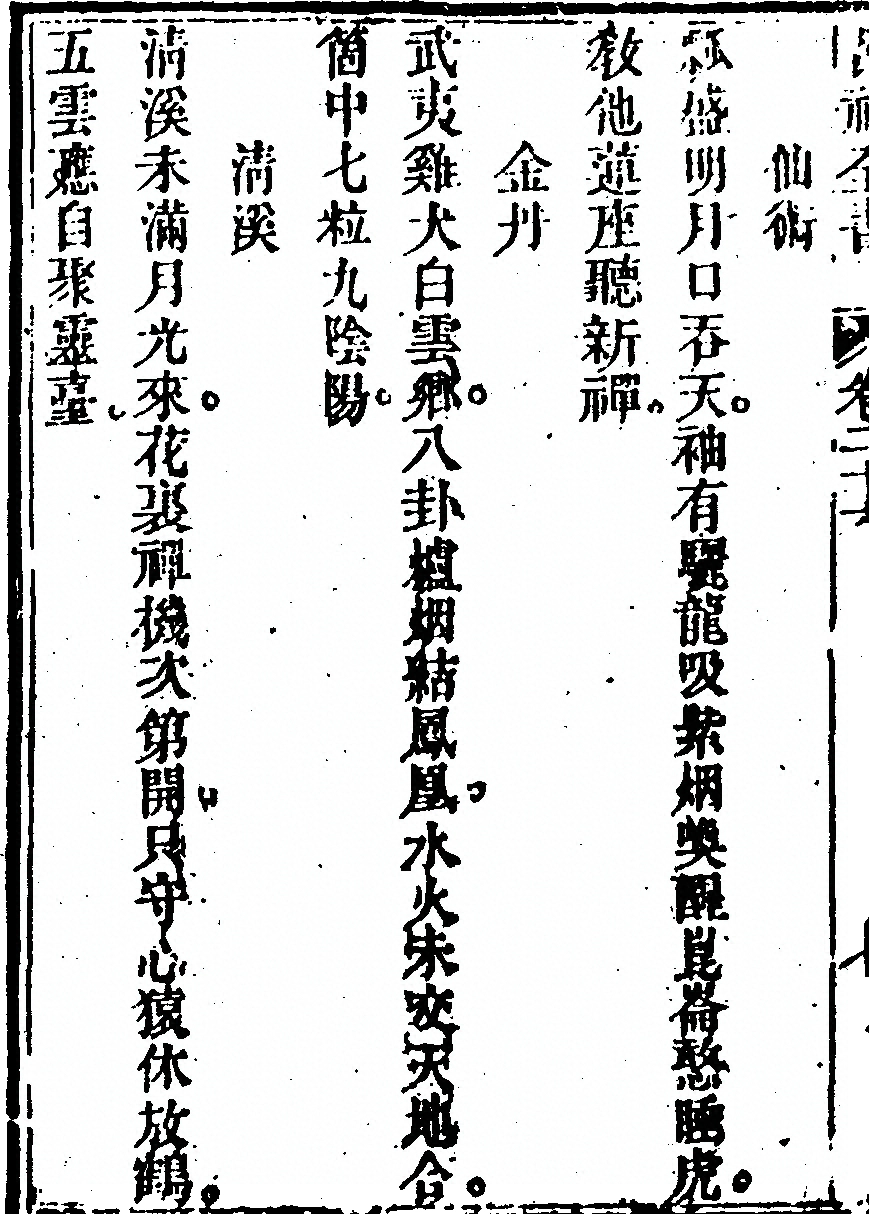 卷二十
仙術
瓢盛明月口吞天袖有驪龍吸紫烟奐醒崑崙憨睡虎
教他蓮座聽新禪
金丹
武夷雞犬白雲鄉八卦爐烟結鳳凰水火未交天地合
箇中七粒九陰陽
清溪
清溪未滿月光來花裏禪機次第開只守心猿休放鶴
五雲應自聚靈臺